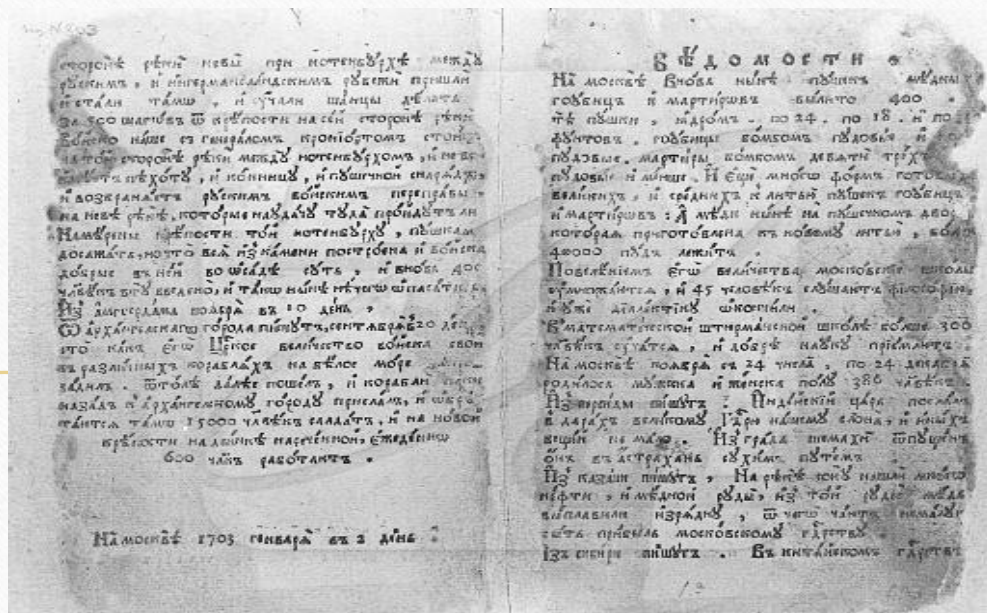 сторонѣ рѣки невы при нотенбурхѣ между
рускимъ, и ингерманландскимъ рубежи пришли
и стали тамъ, и ѹчали шанцы дѣлать
за 500 шагѡвъ ѿ крѣпости на сей сторонѣ рѣки
воиско наше съ генераломъ кронїортомъ стоитъ
на той сторонѣ рѣки между нотенбурхомъ, и не
пѣхоту, и конницу, и пушечной снарядъ,
и возбраняетъ рускимъ воискимъ переправы
на невѣ рѣкѣ, которые наудачу туда проидутъ ли
Намѣрены крѣпости той нотенбурху, пушками
досажать, но что вся изъ камени построена и воиска
добрые въ ней во ѡсадѣ суть, и вновь 400
члвѣкъ въ ту введено, и такѡ нынѣ нѣчегѡ ѡпасатися
Изъ амстердама ноября въ 10 день.
Ѿ архангелскагѡ города пишутъ, сентября въ 20 день
что какъ егѡ Црское величество воиска свои
въ различныхъ корабляхъ на бѣлое море
задилъ. ѿтолѣ далѣе пошелъ, и корабли паки
назадъ к архангелскому городу прислалъ, и ѡбрѣ
таются тамъ 15000 члвѣкъ салдатъ, и на новой
крѣпости на двинкѣ нареченной, ежеденнѡ
600 члвкъ работаютъ.
На москвѣ 1703 генваря въ 2 день
ВѢДОМОСТИ
На москвѣ вновь нынѣ пушекъ мѣдныхъ
гоубицъ и мартирѡвъ вылито 400.
тѣ пушки, ядромъ. по 24. по 18. и по
фунтовъ. гоубицы бомбомъ пудовые и
пудовые. мартиры бомбомъ девяти трехъ
пудовые и менше. И еще многѡ формъ готовыхъ
великихъ, и среднихъ к литью пушекъ гоубицъ
и мартирѡвъ: А мѣди нынѣ на пушечномъ дворѣ
которая приготовлена къ новому литью, болше
40000 пудъ лежитъ.
Повелѣнїемъ егѡ величества московские школы
ѹмножаются, и 45 человѣкъ слушаютъ философию,
и уже дїалектику ѡкончили.
Въ математической штюрманской школѣ болше 300
члвѣкъ ѹчатся, и добрѣ науку прїемлютъ.
На москвѣ ноября съ 24 числа, по 24 декабря
родилось мужска и женска полу 386 члвѣкъ.
Изъ персиды пишутъ. Индѣйский царь послалъ
в дарахъ великому Гдрю нашему слона, и иныхъ
вещей не мало. Изъ града шемахи ѿпущенъ
онъ въ астрахань сухимъ путемъ.
Изъ казани пишутъ. На рѣкѣ соку нашли многѡ
нефти, и мѣдной руды, из той руды мѣдь
выплавили изрядну, ѿ чегѡ чаютъ немалую
быть прибыль московскому гдрству.
Изъ сибири пишутъ. Въ китайскомъ гдрствѣ